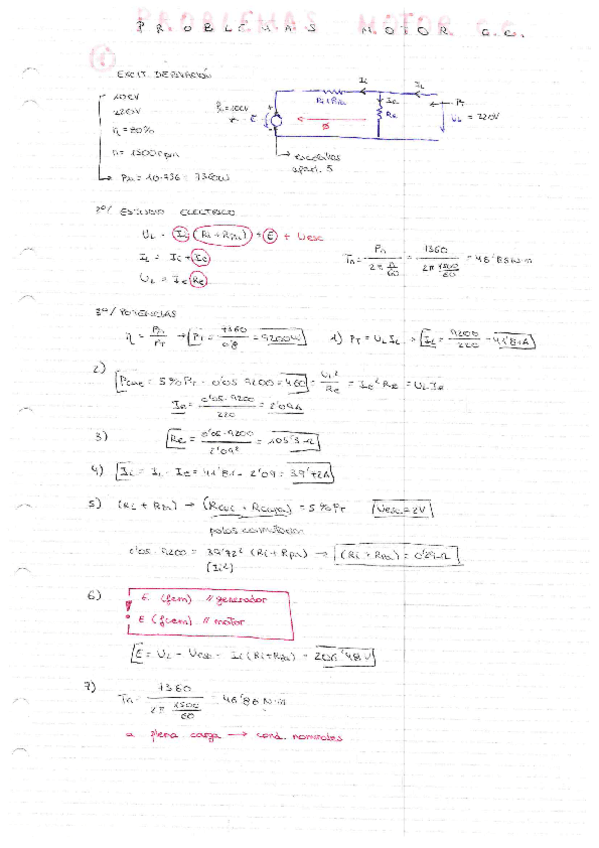 PROBLEMAS MOTOR C.C.
PROBLEMAS MOTOR C.C.
1
EXCIT. DERIVACIÓN
10CV
220V
η = 80%
n = 1500rpm
Pn = 10·736 = 7360W
Ii
IL
Ri+Rpa
Ie
Re
PT
UL = 220V
E
escobillas
apart. 5
2º/ ESTUDIO ELECTRICO
UL = Ii (Ri+Rpa) + E + Uesc
IL = Ie + Ii
UL = Ie Re
Tn = Pn / 2π n/60 = 7360 / 2π 1500/60 = 46'85 N·m
3º/ POTENCIAS
η = Pn/PT → PT = 7360/0'8 = 9200W
1) PT = UL IL → IL = 9200/220 = 41'81A
2)
Pcue = 5% PT = 0'05·9200 = 460 = UL²/Re = Ie² Re = UL Ie
Ie = 0'05·9200 / 220 = 2'09A
3) Re = 0'05·9200 / 2'09² = 105'3Ω
4) Ii = IL - Ie = 41'81 - 2'09 = 39'72A
5) (Ri + Rpa) → = 5% PT Uesc = 2V
polos conmutación
0'05·9200 = 39'72² (Ri + Rpa) → (Ri + Rpa) = 0'29Ω
(Ii²)
6) E (fem) // generador
E (fcem) // motor
E = UL - Uesc - Ii (Ri+Rpa) = 206'48V
7)
Tn = 7360 / 2π 1500/60 = 46'86 N·m
a plena carga → cond. nominales